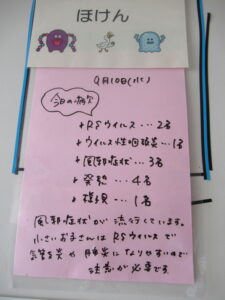 ほけん
9月10日(水)
今日の病欠
+RSウイルス…2名
+ウイルス性咽頭炎…1名
+風邪症状…3名
+発熱…4名
+様子見…1名
風邪症状が流行しています。
小さいお子さんはRSウイルスで
気管支炎や肺炎になりやすいので
注意が必要です。